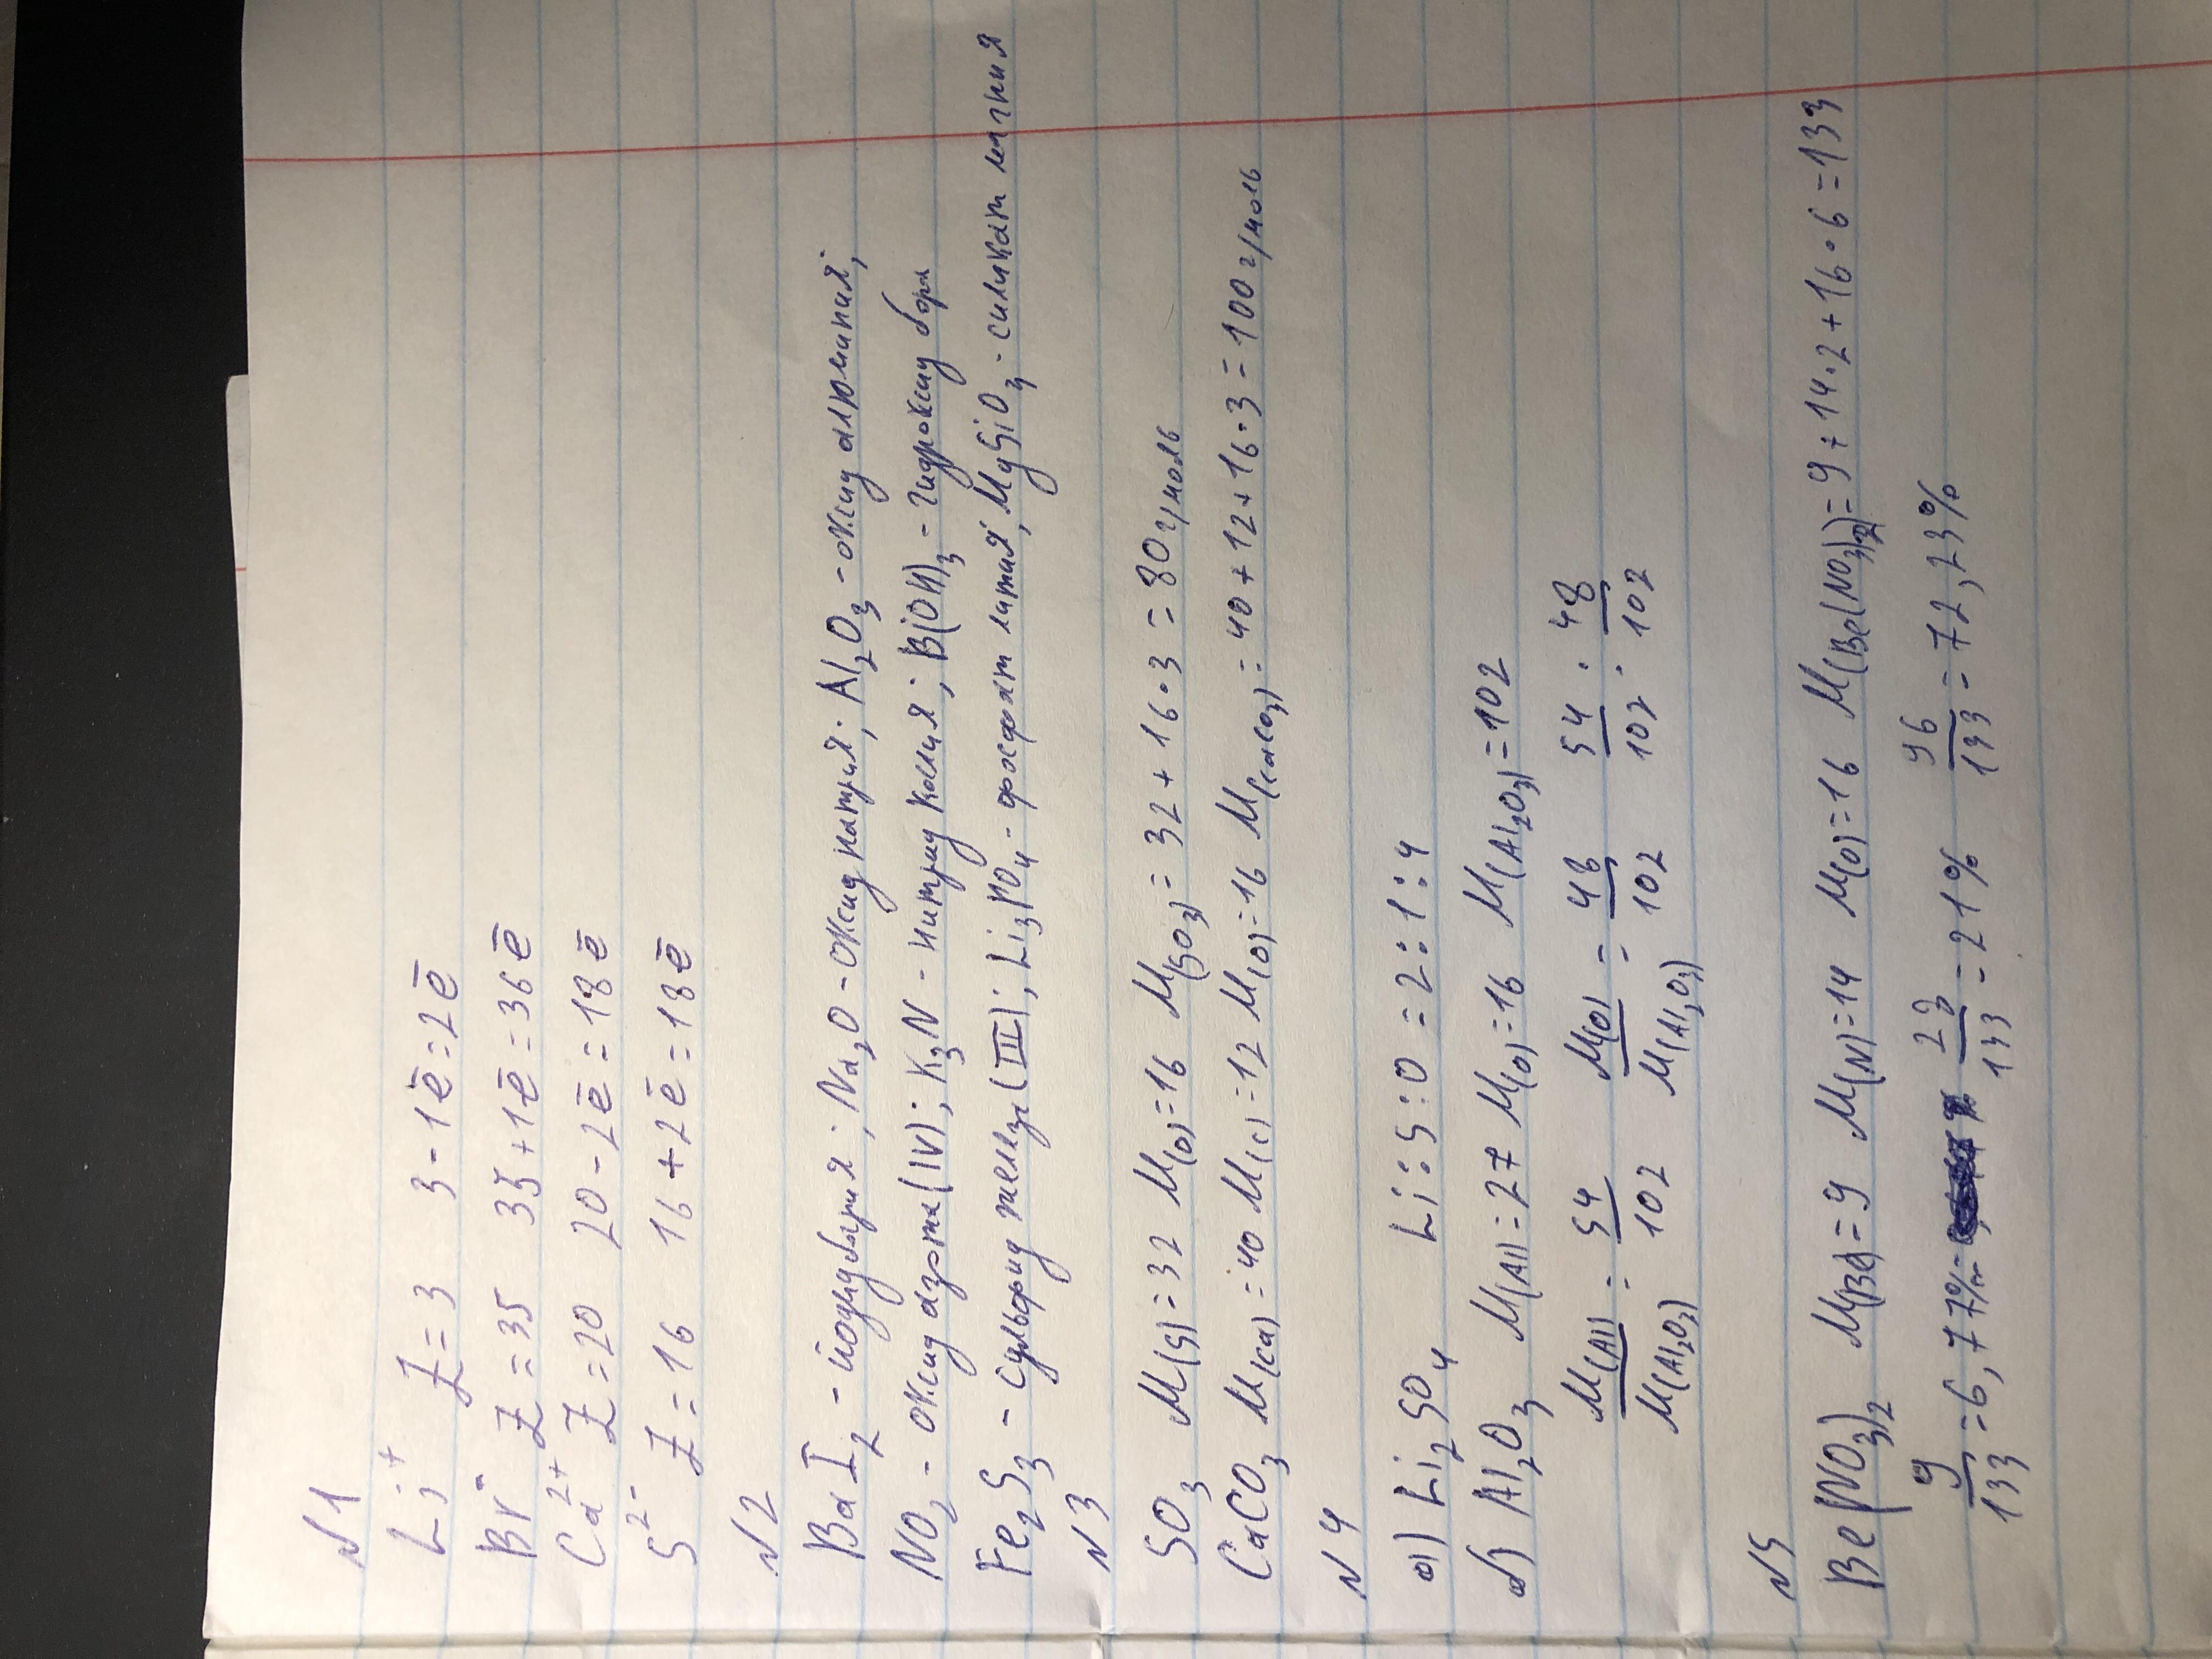 N1
Li⁺ Z=3 3-1ē=2ē
Br⁻ Z=35 35+1ē=36ē
Ca²⁺ Z=20 20-2ē=18ē
S²⁻ Z=16 16+2ē=18ē
N2
BaI₂ - йодид бария; Na₂O - оксид натрия; Al₂O₃ - оксид алюминия;
NO₂ - оксид азота (IV); K₃N - нитрид калия; B(OH)₃ - гидроксид бора
Fe₂S₃ - сульфид железа (III); Li₃PO₄ - фосфат лития; MgSiO₃ - силикат магния
N3
SO₃ M(S)=32 M(O)=16 M(SO₃)=32+16·3=80 г/моль
CaCO₃ M(Ca)=40 M(C)=12 M(O)=16 M(CaCO₃)=40+12+16·3=100 г/моль
N4
а) Li₂SO₄ Li:S:O=2:1:4
б) Al₂O₃ M(Al)=27 M(O)=16 M(Al₂O₃)=102
M(Al)/M(Al₂O₃) = 54/102 M(O)/M(Al₂O₃) = 48/102 54/102 : 48/102
N5
Be(NO₃)₂ M(Be)=9 M(N)=14 M(O)=16 M(Be(NO₃)₂)=9+14·2+16·6=133
9/133=6,77% 28/133=21% 96/133=72,23%